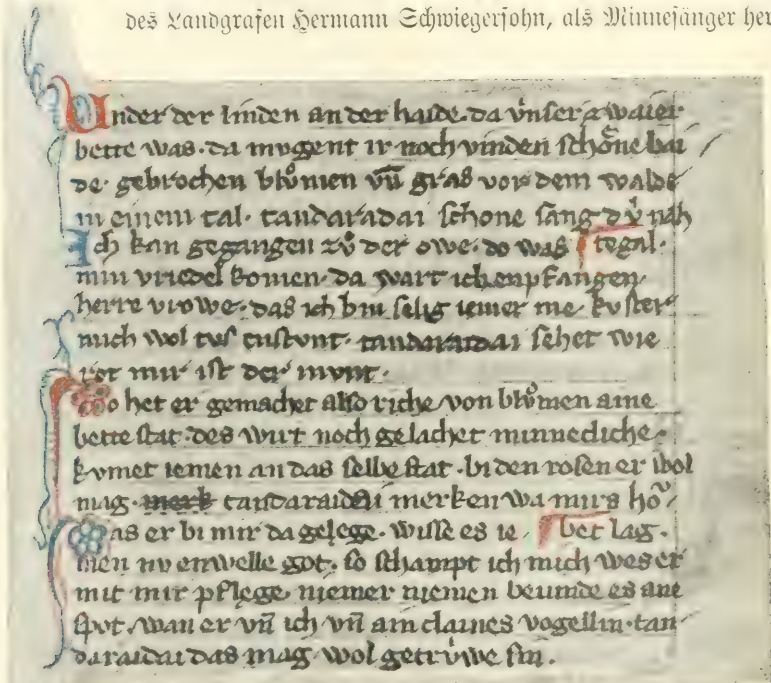 des Landgrafen Hermann Schwiegersohn, als Minnesänger her
Vnder der linden an der haide · da vnser zwaier
bette was · da mugent ir noch vinden schöne bai
de · gebrochen blůmen vn̄ gras vor dem walde
in einem tal · tandaradai schone sang dv̍ nah
Ich kan gegangen zů der owe · do was tegal ·
min vriedel komen · da wart ich enpfangen
herre vrowe · das ich bin selig iemer me · kuster
mich wol tusent stunt · tandaraidai sehet wie
rot mir ist der munt ·
Do het er gemachet also riche von blůmen aine
bettestat · des wirt noch gelachet minnecliche ·
kvmet iemen an das selbe stat · bi den rosen er wol
mag · merk tandaraidai merken wa mirs hö
Das er bi mir da gelege · wisse es ie bet lag ·
men nv enwelle got · so schampt ich mich wes er
mit mir pflege · niemer niemen bevinde es ane
spot · wan er vn̄ ich vn̄ ain claines vogellin · tan
daraidai das mag wol getrv̍we sin ·